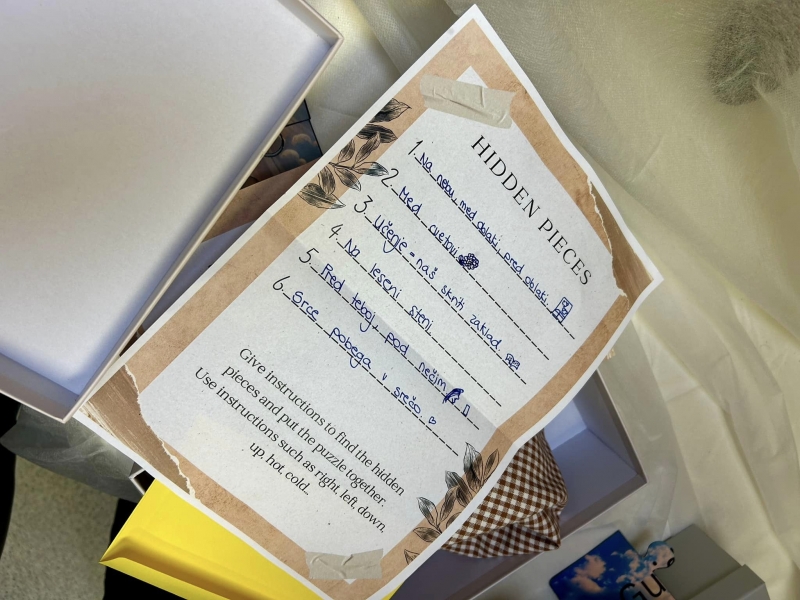 HIDDEN PIECES
1. Na nebu, med oblaki, pred oblaki.
2. Med cvetovi
3. Učenje = naš skriti zaklad
4. Na leseni steni
5. Pred teboj, pod nečim
6. Srce pobega v srečo.
Give instructions to find the hidden
pieces and put the puzzle together.
Use instructions such as right, left, down,
up, hot, cold...
Gu